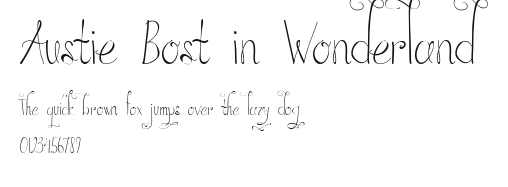 Austie Bost in Wonderland
The quick brown fox jumps over the lazy dog
0123456789